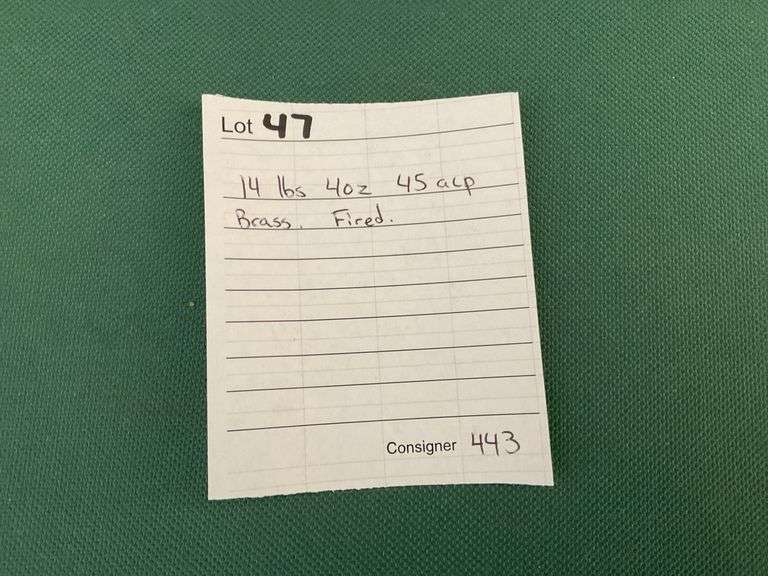 Lot 47
14 lbs 4oz 45 acp
Brass. Fired.
Consigner 443